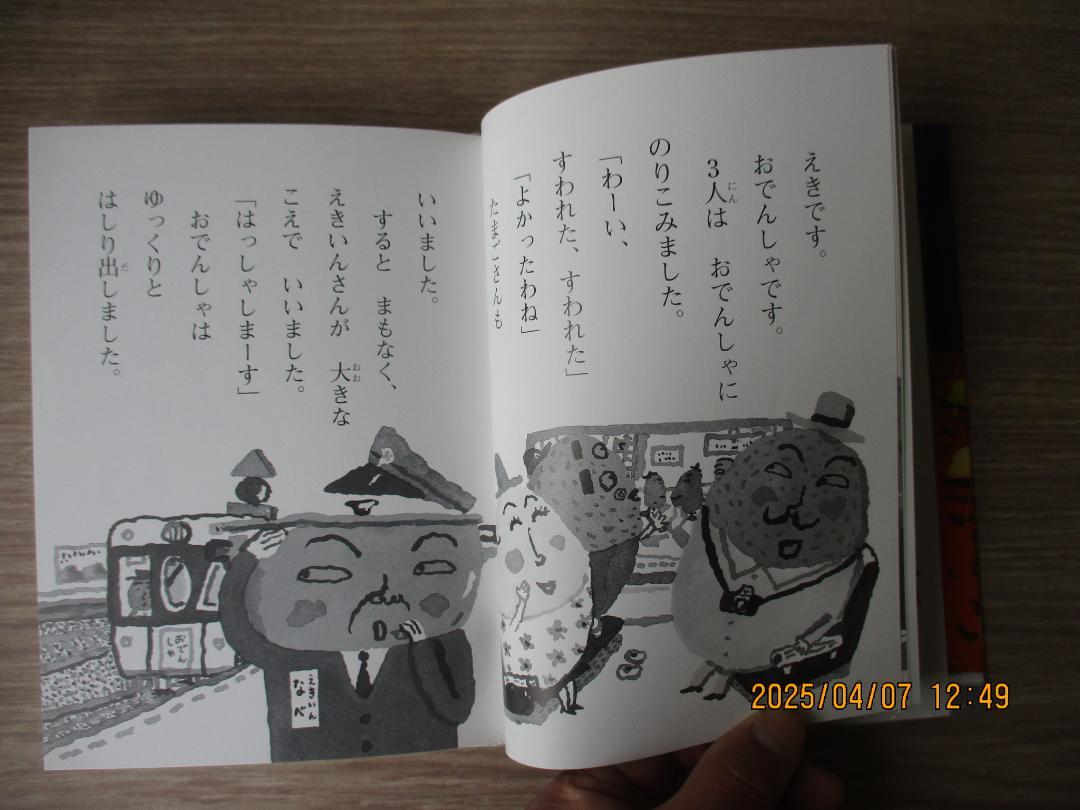 えきです。
おでんしゃです。
3人は　おでんしゃに
のりこみました。
「わーい、
すわれた、すわれた」
「よかったわね」
たまごさんも
いいました。
すると　まもなく、
えきいんさんが　大きな
こえで　いいました。
「はっしゃしまーす」
おでんしゃは
ゆっくりと
はしり出しました。
おでん
しゃ
えきいん
なべ
2025/04/07 12:49